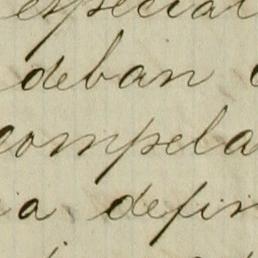 especial
deban
compela
ia defin